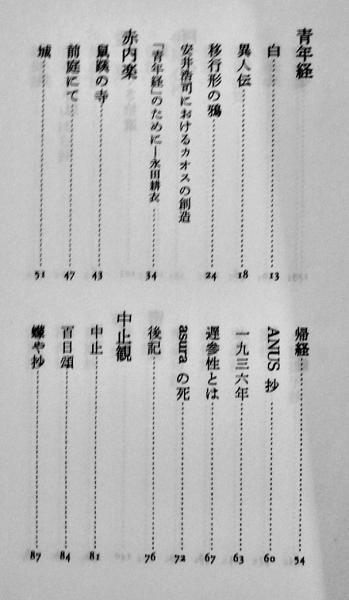 青年経
白 13
異人伝 18
移行形の鴉 24
安井浩司におけるカオスの創造
『青年経』のために―永田耕衣 34
赤内楽
鼠蹊の寺 43
前庭にて 47
城 51
帰経 54
ANUS 抄 60
一九三六年 63
遅参性とは 67
asura の死 72
後記 76
中止観
中止 81
百日頌 84
や抄 87